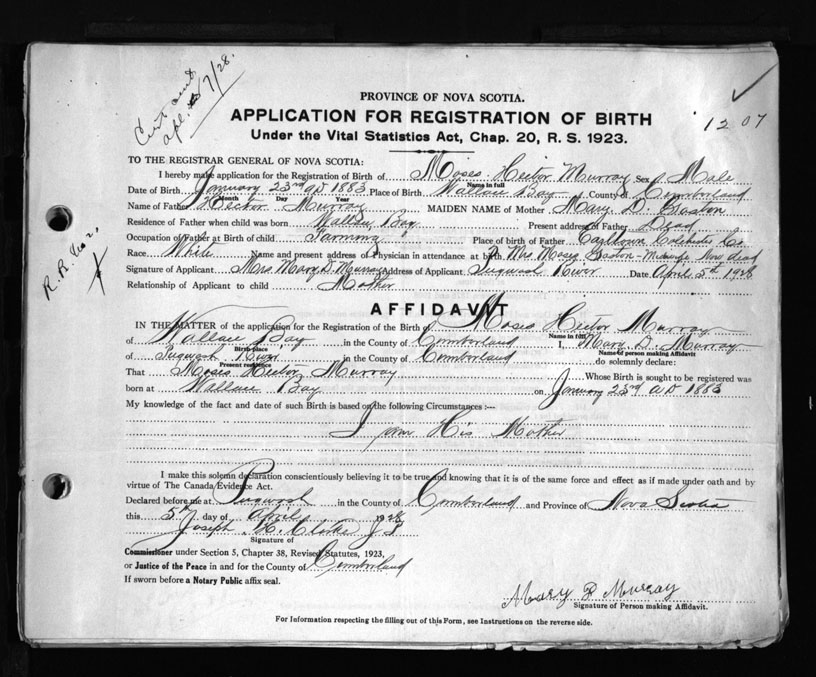 Cert sent
apl. 7/28.
PROVINCE OF NOVA SCOTIA.
APPLICATION FOR REGISTRATION OF BIRTH
Under the Vital Statistics Act, Chap. 20, R. S. 1923.
1207
TO THE REGISTRAR GENERAL OF NOVA SCOTIA:
I hereby make application for the Registration of Birth of Moses Hector Murray Sex Male
Name in full
Date of Birth January 23rd AD 1883 Place of Birth Wallace Bay County of Cumberland
Month Day Year
Name of Father Hector Murray MAIDEN NAME of Mother Mary D.
Residence of Father when child was born Wallace Bay Present address of Father Dead
Occupation of Father at Birth of child Farming Place of Birth of Father Co.
Race White Name and present address of Physician in attendance at birth Mrs Moses - Midwife Now dead
Signature of Applicant Mrs Mary D. Murray Address of Applicant Pugwash River Date April 5th 1928
Relationship of Applicant to child Mother
AFFIDAVIT
IN THE MATTER of the application for the Registration of the Birth of Moses Hector Murray
Name in full
of Wallace Bay in the County of Cumberland I, Mary D. Murray
Birth-place Name of person making Affidavit
of Pugwash River in the County of Cumberland do solemnly declare:
Present residence
That Moses Hector Murray Whose Birth is sought to be registered was
born at Wallace Bay on January 23rd AD 1883
My knowledge of the fact and date of such Birth is based on the following Circumstances :—
I am His Mother
I make this solemn declaration conscientiously believing it to be true and knowing that it is of the same force and effect as if made under oath and by
virtue of The Canada Evidence Act.
Declared before me at Pugwash in the County of Cumberland and Province of Nova Scotia
this 5th day of April 1928
Joseph J P
Signature of
Commissioner under Section 5, Chapter 38, Revised Statutes, 1923,
or Justice of the Peace in and for the County of Cumberland
If sworn before a Notary Public affix seal.
Mary D Murray
Signature of Person making Affidavit.
For Information respecting the filling out of this Form, see Instructions on the reverse side.